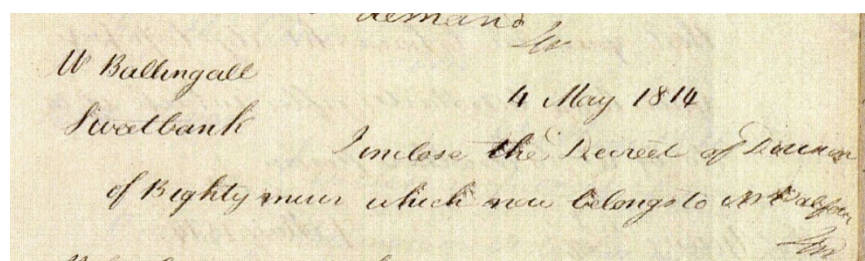 demand
W Ballingall
4 May 1814
Sweetbank
I inclose the Decreet of Division
of Bighty muir which now belongs to Mr Balfour